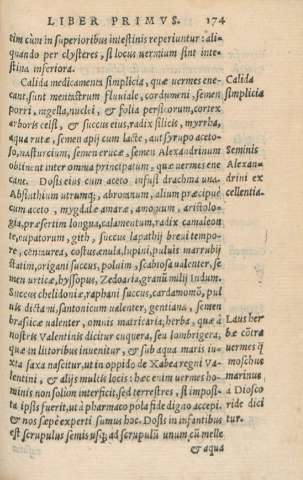 LIBER PRIMVS. 174
tim cùm in superioribus intestinis reperiuntur: ali-
quando per clysteres, si locus vermium sint inte-
stina inferiora.
Calida medicamenta simplicia, quæ vermes ene-
cant, sunt mentastrum fluuiale, cordumeni, semen
porri, nigella, nuclei, & folia persicorum, cortex
arboris celsi, & succus eius, radix filicis, myrrha,
aqua rutæ, semen apij cum lacte, aut syrupo aceto-
so, nasturcium, semen erucæ, semen Alexandrinum
obtinent inter omnia principatum, quæ vermes ene
cant. Dosis eius cum aceto infusi drachma una.
Absinthium utrumq;, abrotanum, alium præcipuè
cum aceto, mygdalæ amaræ, amomum, aristolo-
gia, præsertim longa, calamentum, radix camaleon
te, eupatorum, gith, succus lapathij breui tempo-
re, centaurea, costus, enula, lupini, puluis marrubij
statim, origani succus, poluim, scabiosa ualenter, se
men urticæ, hyssopus, Zedoaria, granū milij Indum.
Succus chelidoniæ, raphani succus, cardamomū, pul
uis dictami, santonicum ualenter, gentiana, semen
brasicæ ualenter, omnis matricaria, herba, quæ à
nostris Valentinis dicitur cuquera, seu lombrigera,
quæ in littoribus inuenitur, & sub aqua maris iu-
xta saxa nascitur, ut in oppido de Xabea regni Va-
lentini, & alijs multis locis: hæc enim uermes ho-
minis non solùm interficit, sed terrestres, si imposi-
ta ipsis fuerit, ut à pharmacopola fide digno accepi,
& nos sæpe experti sumus hoc. Dosis in infantibus
est scrupulus semis usq; ad scrupulū unum, cū melle
& aqua
Calida
simplicia
Seminis
Alexan-
drini ex
cellentia.
Laus her
bæ cōtra
uermes q̃
moschus
marinus
à Diosco
ride dici
tur.